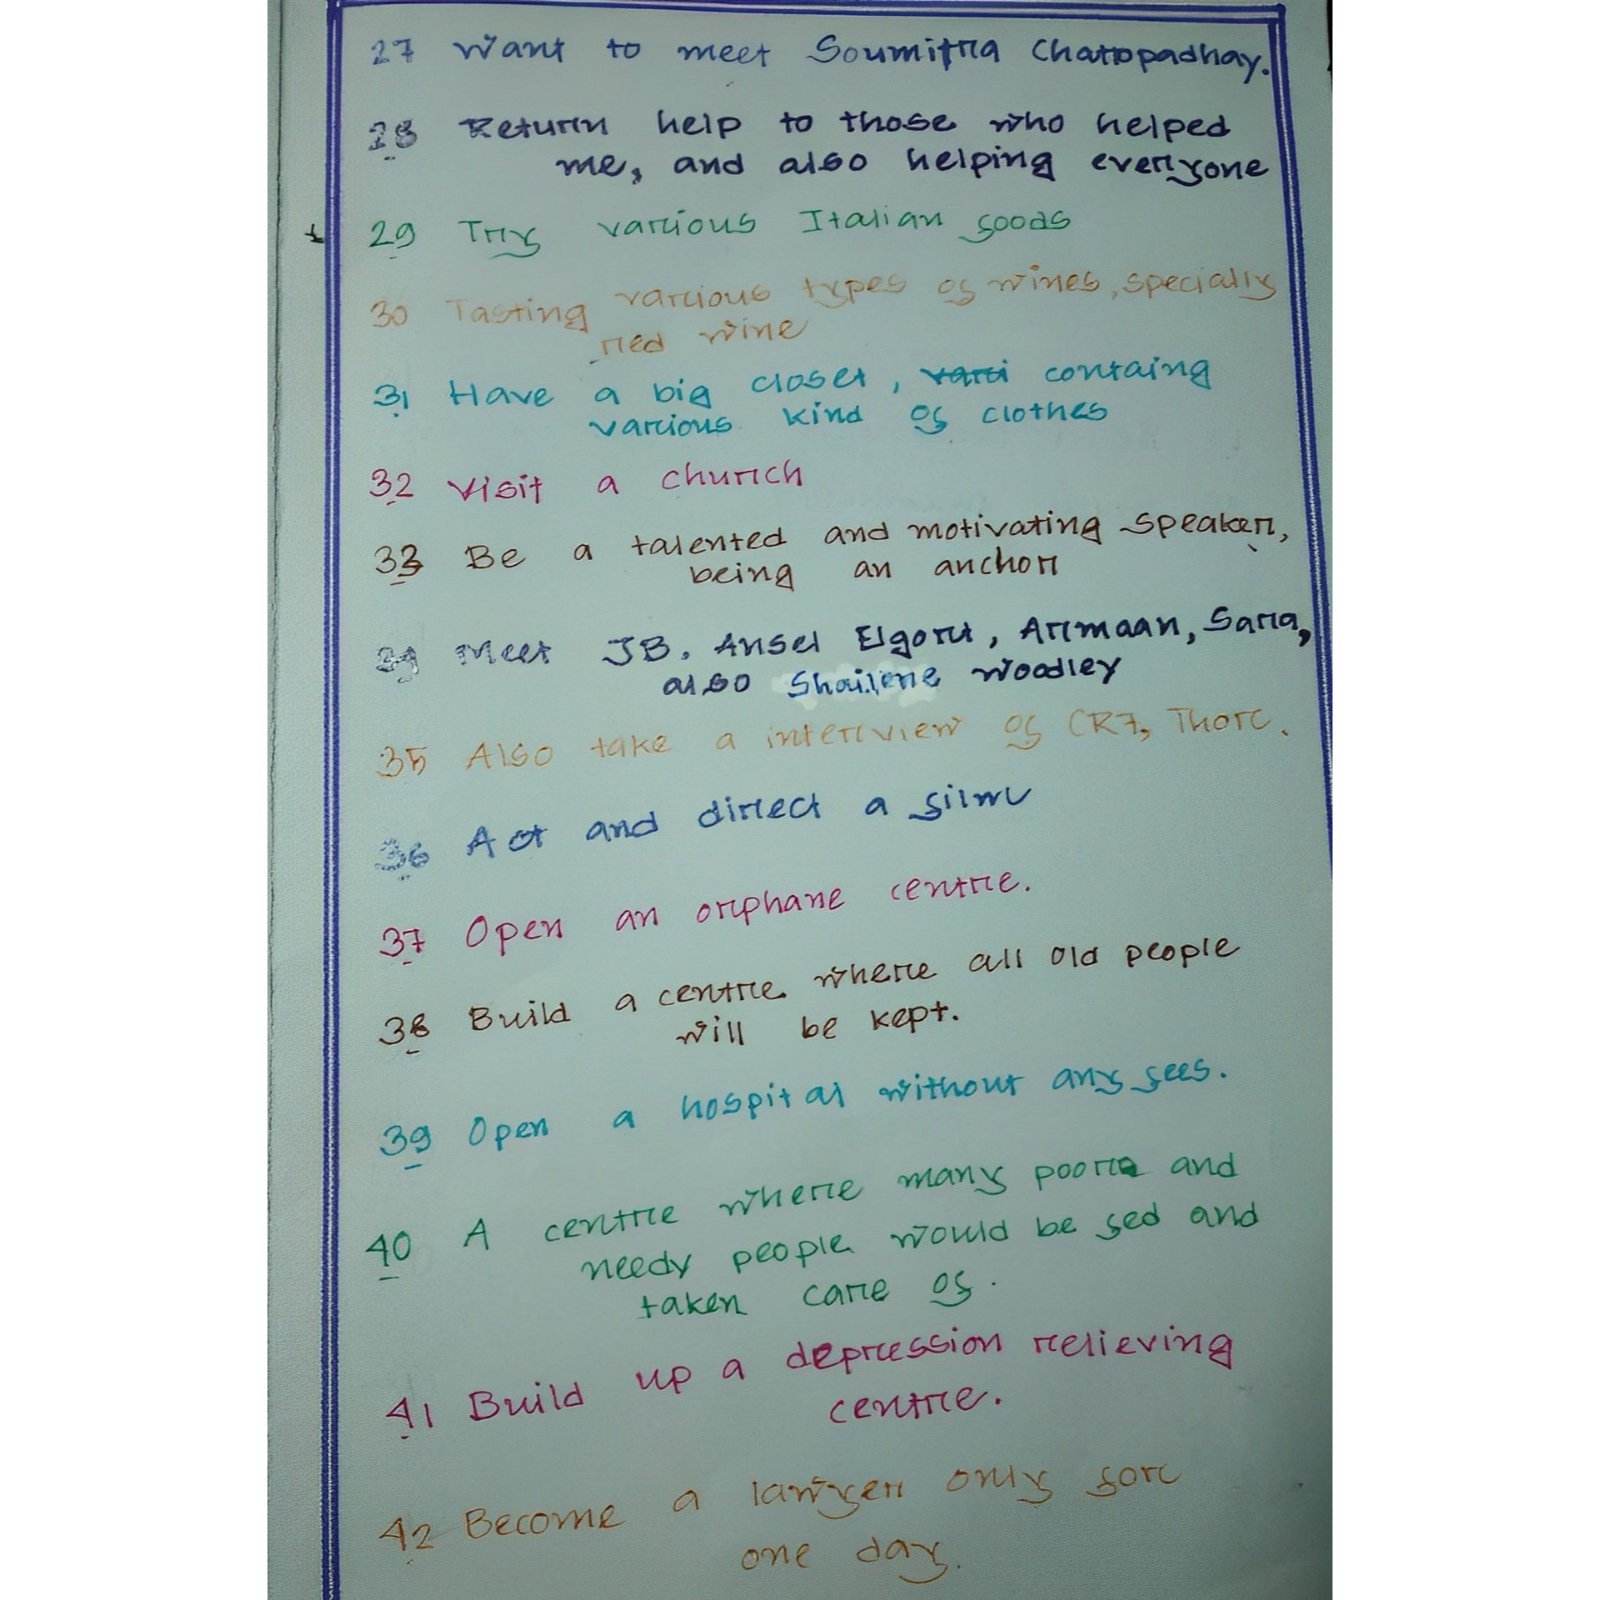 27 Want to meet Soumitra Chattopadhay.
28 Return help to those who helped
me, and also helping everyone
29 Try various Italian foods
30 Tasting various types of wines, specially
red wine
31 Have a big closet, vari containg
various kind of clothes
32 Visit a church
33 Be a talented and motivating speaker,
being an anchor
34 Meet JB, Ansel Elgort, Armaan, Sara,
also Shailene Woodley
35 Also take a interview of CR7, Thor.
36 Act and direct a film
37 Open an orphane centre.
38 Build a centre where all old people
will be kept.
39 Open a hospital without any fees.
40 A centre where many poor and
needy people would be fed and
taken care of.
41 Build up a depression relieving
centre.
42 Become a lawyer only for
one day.